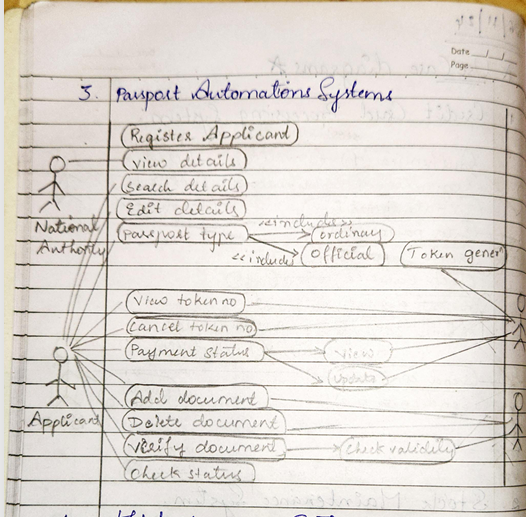 Date
Page
3. Passport Automations Systems
Register Applicard
View details
Search details
Edit details
National Authority
Passport type
<<include>>
ordinary
<<include>>
Official
Token gener
View token no
Cancel token no
Payment status
View
Update
Applicant
Add document
Delete document
Verify document
Check validity
Check status